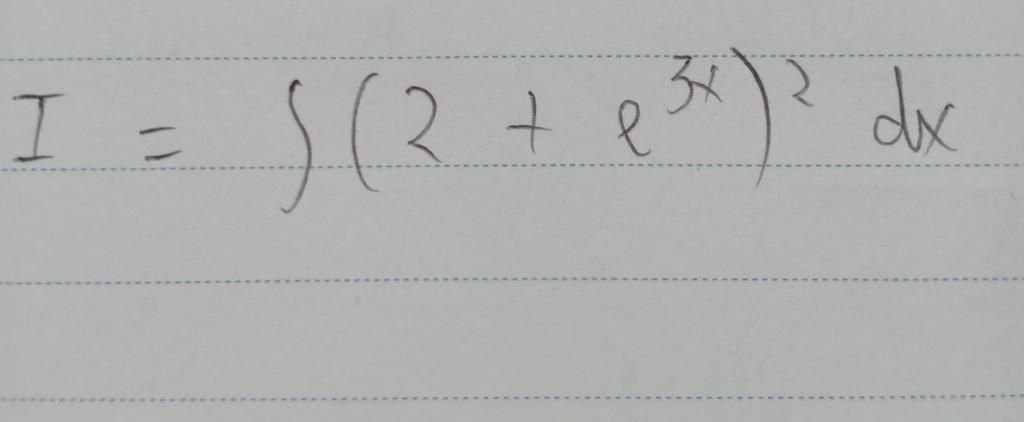 I = ∫(2 + e^{3x})^2 dx